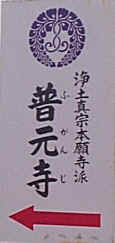 浄土真宗本願寺派
普元寺
ふがんじ